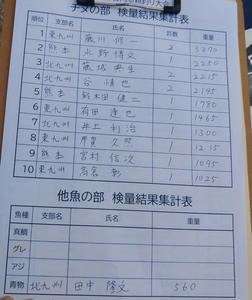 チヌの部 検量結果集計表
順位 支部名 氏名 匹数 重量
1 東九州 藤川 修一 2 3270
2 熊本 水野 博文 2 2250
3 北九州 2 2215
4 北九州 谷 情也 2 2195
5 熊本 新木田 健二 2 2145
6 東九州 有田 達也 1 1780
7 東九州 井上 利治 1 1465
8 東九州 甲賀 久照 1 1300
9 熊本 宮村 信次 1 1215
10 東九州 高倉 彰 1 1025
他魚の部 検量結果集計表
魚種 支部名 氏名 重量
真鯛
グレ
アジ
青物 北九州 田中 隆文 560